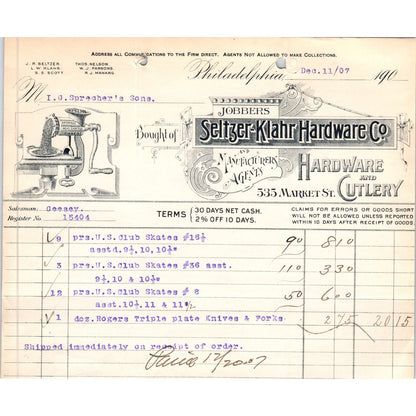 ADDRESS ALL COMMUNICATIONS TO THE FIRM DIRECT. AGENTS NOT ALLOWED TO MAKE COLLECTIONS.
J. R. SELTZER. THOS. NELSON.
L. W. KLAHR. W. J. PARSONS.
S. S. SCOTT. R. J. MANARG.
Philadelphia, Dec.11/07 190
M I.G.Sprecher's Sons.
Bought of
JOBBERS
Seltzer-Klahr Hardware Co
AND
MANUFACTURERS'
AGENTS
HARDWARE
AND
CUTLERY
535 MARKET ST.
Salesman, Geesey.
Register No. 15404
TERMS { 30 DAYS NET CASH.
2% OFF 10 DAYS.
CLAIMS FOR ERRORS OR GOODS SHORT
WILL NOT BE ALLOWED UNLESS REPORTED
WITHIN 10 DAYS AFTER RECEIPT OF GOODS
9 prs.U.S.Club Skates #18½ 90 810
asstd.9½,10,10½
3 prs.U.S.Club Skates #36 asst. 110 330
9½,10 & 10½
12 prs.U.S.Club Skates # 8 50 600
asst.10½,11 & 11½
1 doz.Rogers Triple plate Knives & Forks 275 2015
Shipped immediately on receipt of order.
12/20 07